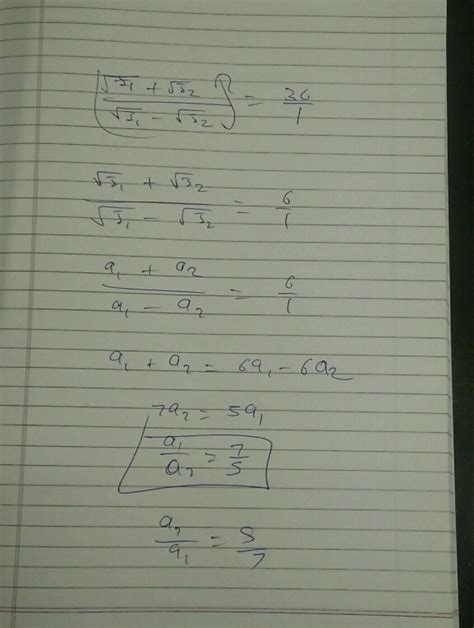 (√I₁ + √I₂ / √I₁ − √I₂) = 36/1
√I₁ + √I₂ / √I₁ − √I₂ = 6/1
a₁ + a₂ / a₁ − a₂ = 6/1
a₁ + a₂ = 6a₁ − 6a₂
7a₂ = 5a₁
a₁/a₂ = 7/5
a₂/a₁ = 5/7